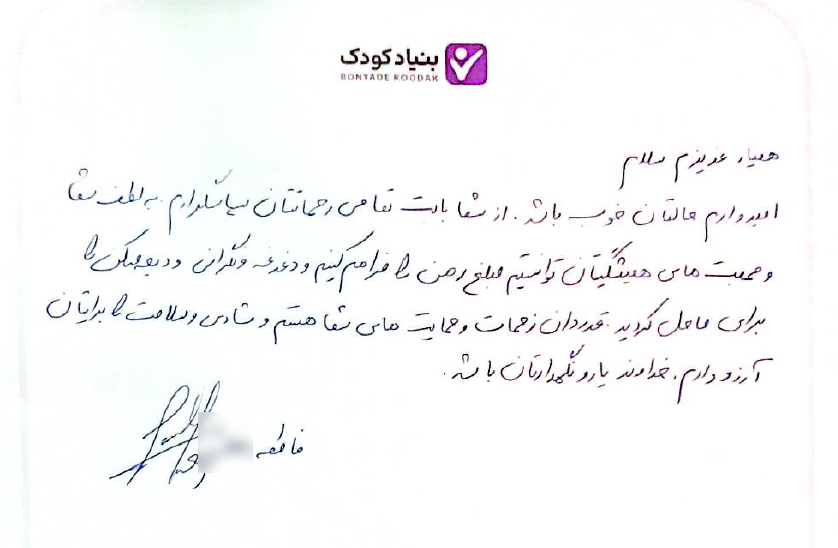 بنیاد کودک
BONYADE KOODAK
همیار عزیزم سلام
امیدوارم حالتان خوب باشد. از شما بابت تمامی زحماتتان سپاسگزارم. به لطف شما
و محبت های همیشگیتان توانستیم مبلغ رهن را فراهم کنیم و دغدغه و نگرانی ودیعه مسکن را
برای ما حل کردید. قدردان زحمات و حمایت های شما هستم و شادی و سلامت را برایتان
آرزو دارم. خداوند یار و نگهدارتان باشد.
فاطمه